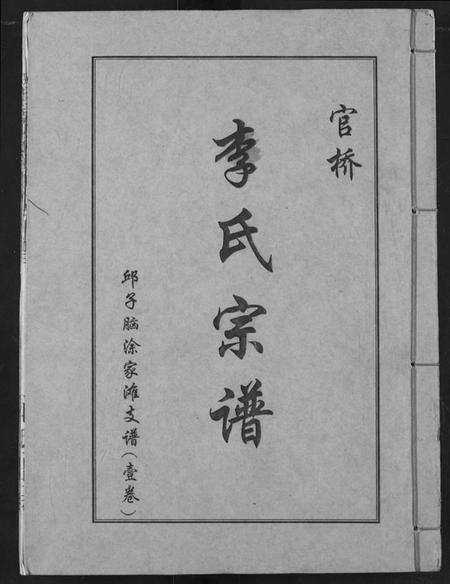 官桥
李氏宗谱
邱子脑涂家滩支谱（壹卷）